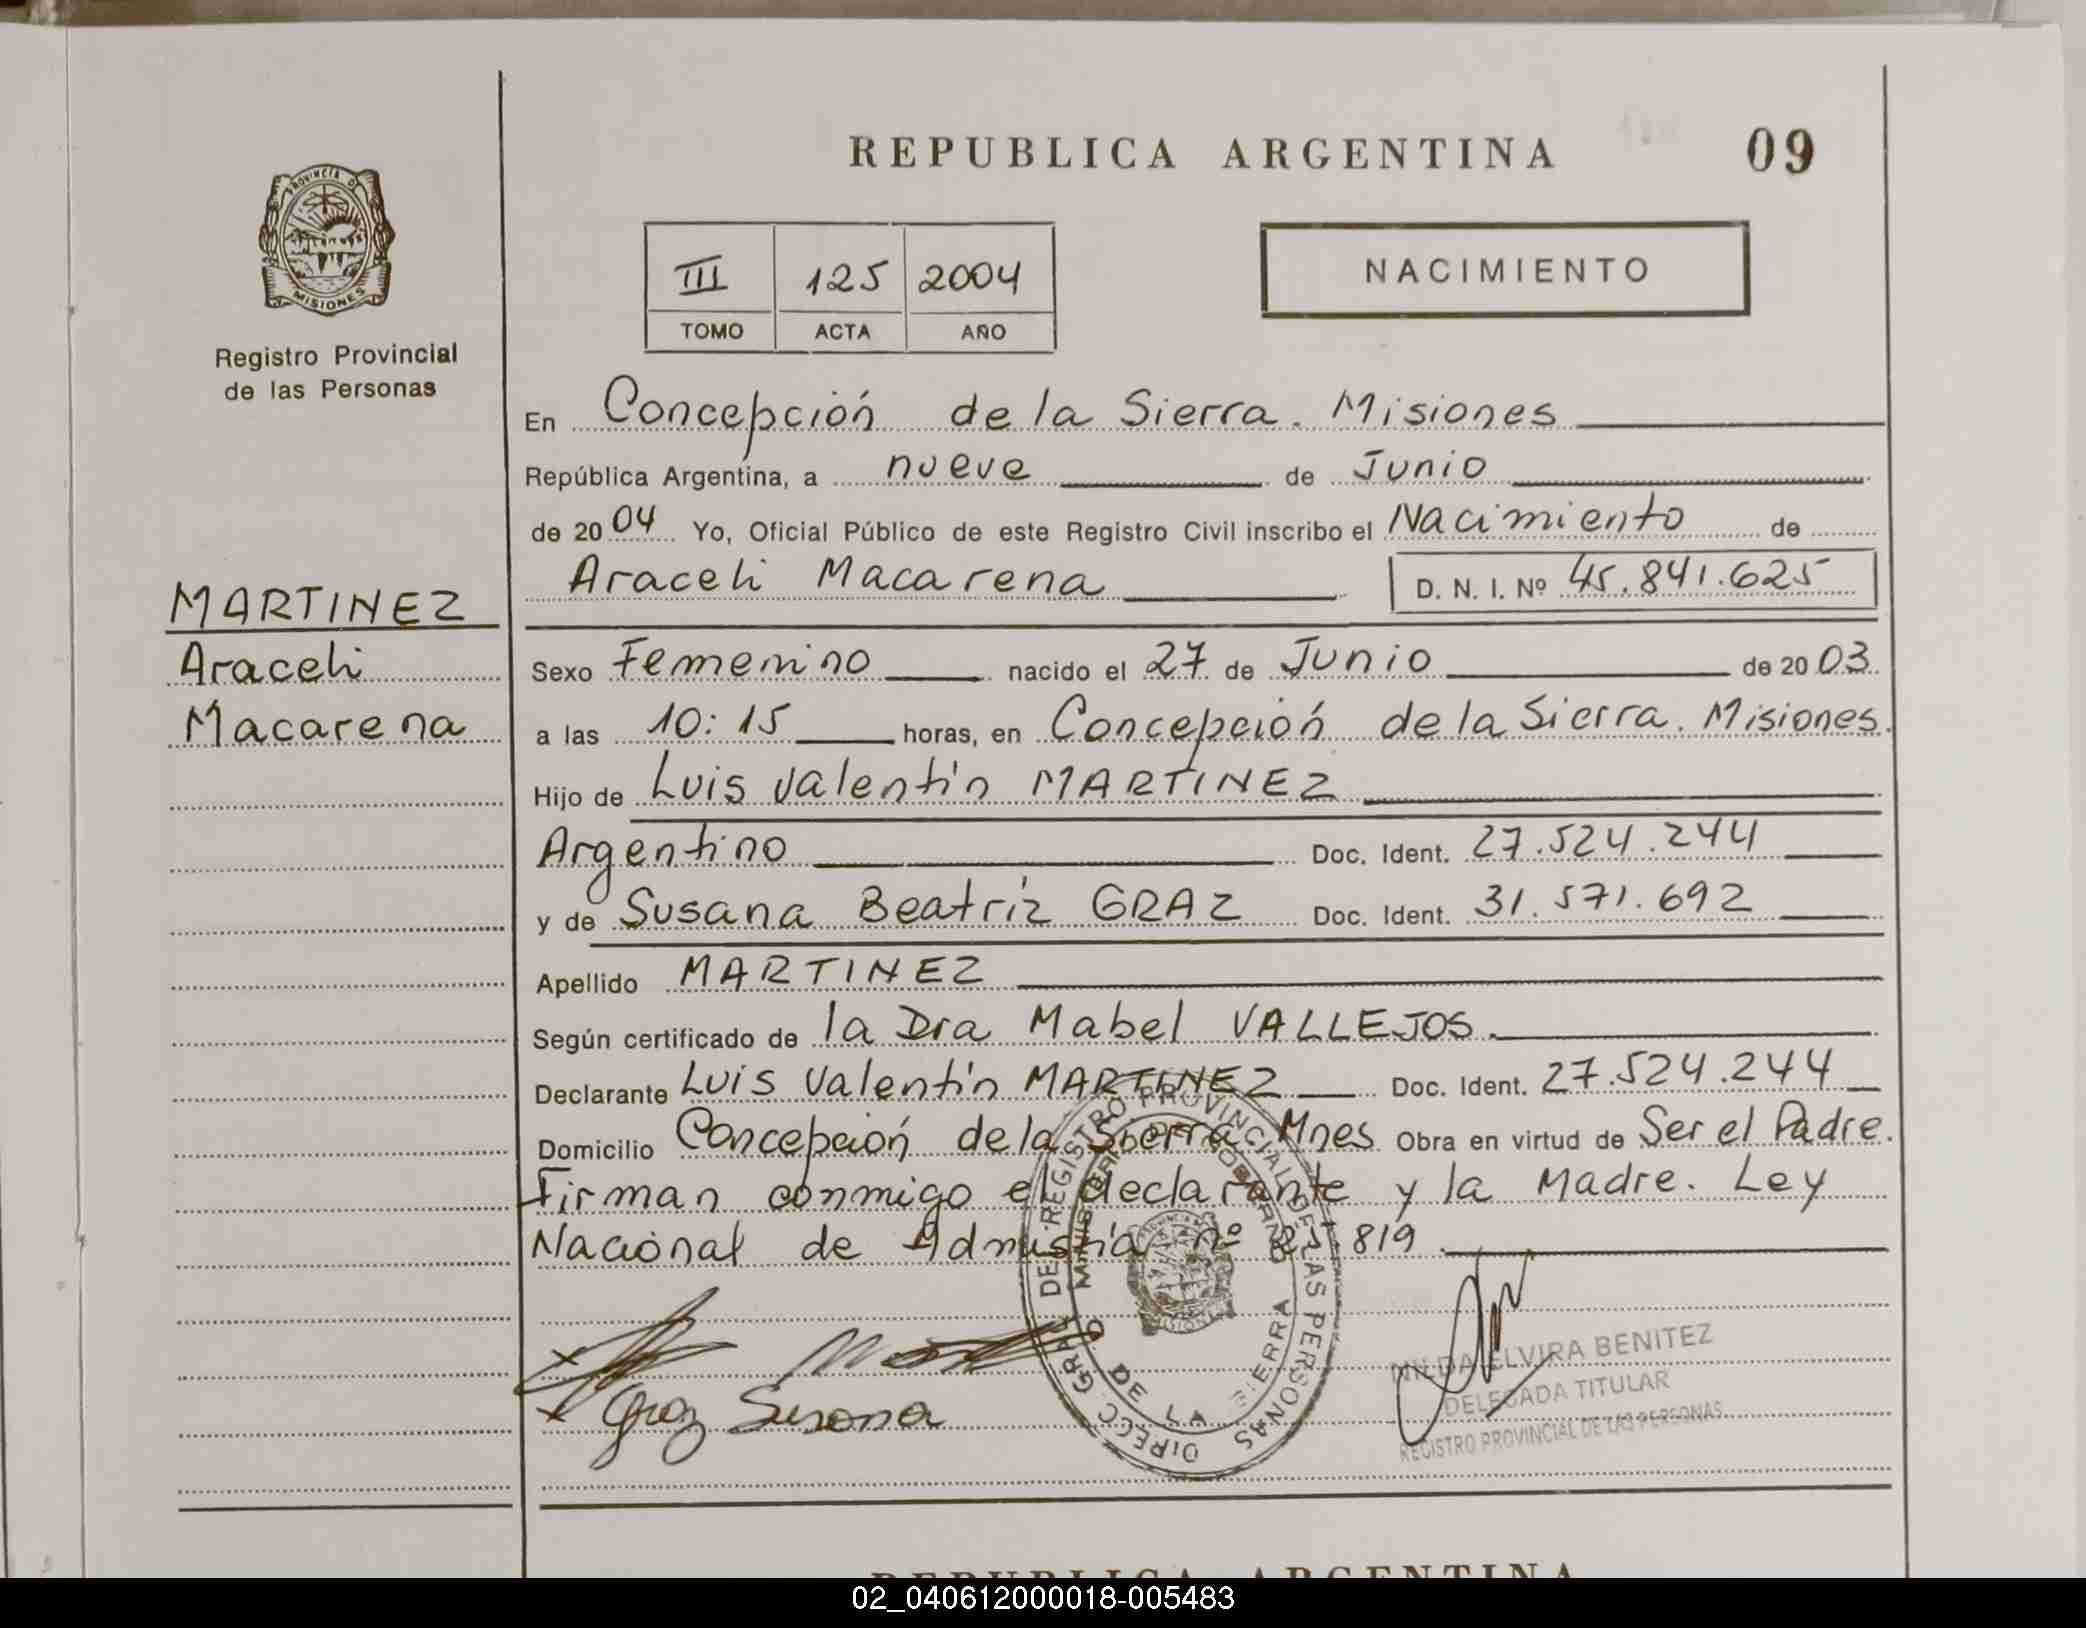 REPUBLICA ARGENTINA
09
PROVINCIA D
MISIONES
Registro Provincial
de las Personas
III 125 2004
TOMO ACTA AÑO
NACIMIENTO
En Concepción de la Sierra. Misiones
República Argentina, a nueve de Junio
de 2004 Yo, Oficial Público de este Registro Civil inscribo el Nacimiento de
Araceli Macarena D. N. I. Nº 45.841.625
MARTINEZ
Araceli
Macarena
Sexo Femenino nacido el 27 de Junio de 2003
a las 10:15 horas, en Concepción de la Sierra. Misiones.
Hijo de Luis Valentín MARTINEZ
Argentino Doc. Ident. 27.524.244
y de Susana Beatríz GRAZ Doc. Ident. 31.571.692
Apellido MARTINEZ
Según certificado de la Dra Mabel VALLEJOS.
Declarante Luis Valentín MARTINEZ Doc. Ident. 27.524.244
Domicilio Concepción de la Sierra Mnes Obra en virtud de Ser el Padre.
Firman conmigo el declarante y la Madre. Ley
Nacional de Admistía nº 25.819
Graz Susana
DIRECC GRAL DE REGISTRO PROVINCIAL DE LAS PERSONAS
DE LA SIERRA
NILDA ELVIRA BENITEZ
DELEGADA TITULAR
REGISTRO PROVINCIAL DE LAS PERSONAS
REPUBLICA ARGENTINA
02_040612000018-005483